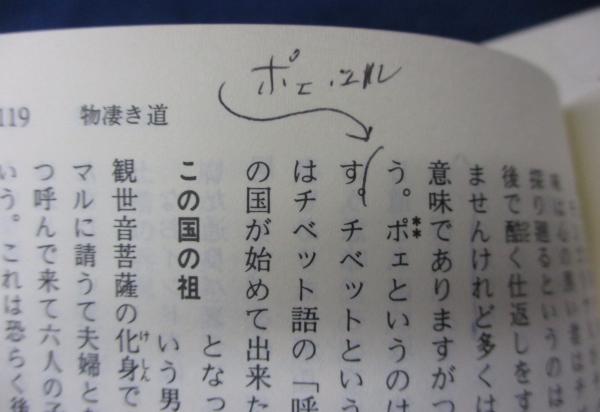 ポェ・ユル
119　物凄き道
探り廻るというのは
後で酷く仕返しをす
ませんけれど多くは
意味でありますがつ
う。ポェというのは
す。チベットという
はチベット語の「呼
の国が始めて出来た
この国の祖
となっ
いう男
観世音菩薩の化身で
けしん
マルに請うて夫婦と
つ呼んで来て六人の子
いう。これは恐らく後